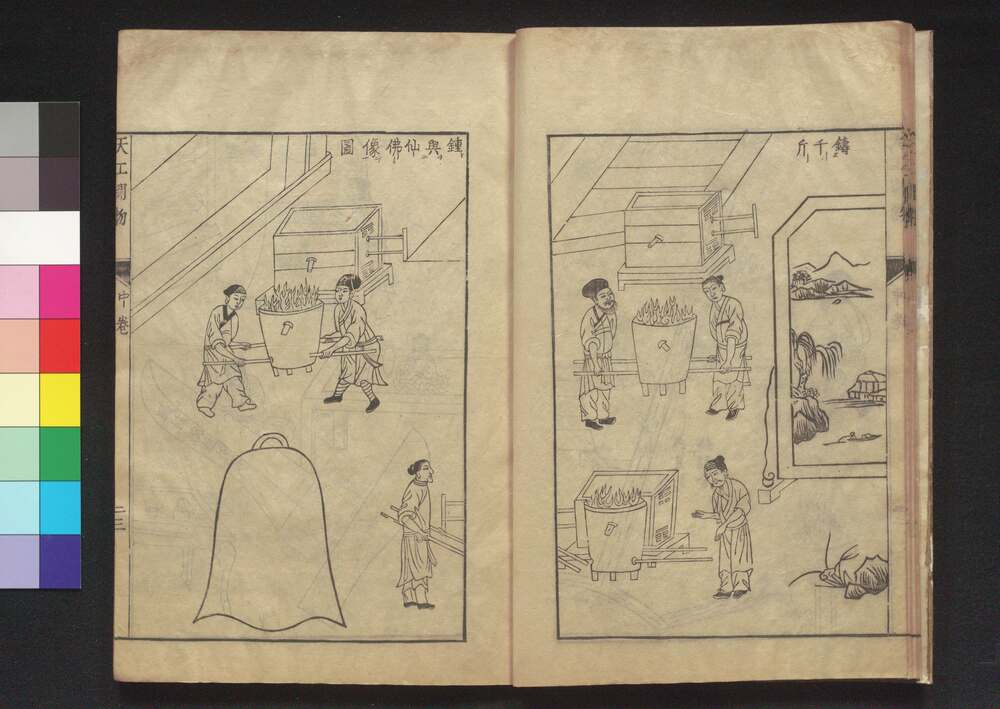 鑄千斤
鍾與仙佛像圖
天工開物
中卷